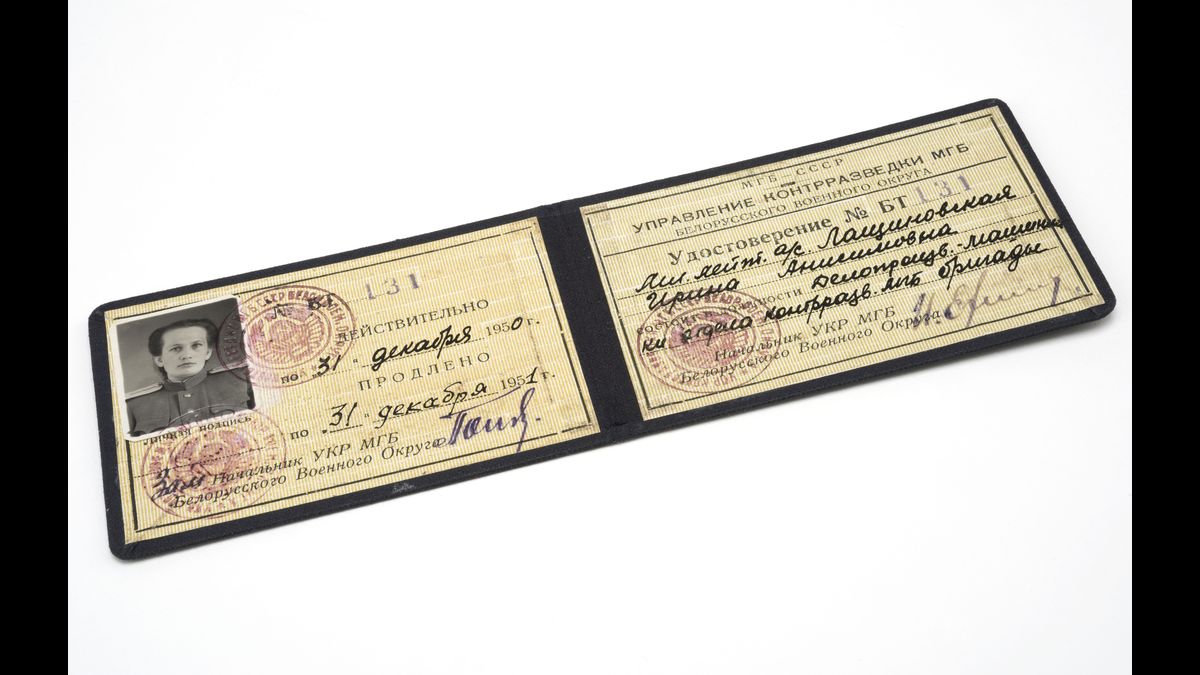 131
ДЕЙСТВИТЕЛЬНО
по „31" декабря 1950 г.
ПРОДЛЕНО
по „31" декабря 1951 г.
Личная подпись
Зам Начальник УКР МГБ
Белорусского Военного Округа
МГБ СССР
УПРАВЛЕНИЕ КОНТРРАЗВЕДКИ МГБ
БЕЛОРУССКОГО ВОЕННОГО ОКРУГА
Удостоверение № БТ 131
Мл. лейт. а/с. Лащиновская
Ирина Анисимовна
состоит в должности Делопроизв.-машинист
ки отдела контрразв. МГБ бригады
Начальник УКР МГБ
Белорусского Военного Округа